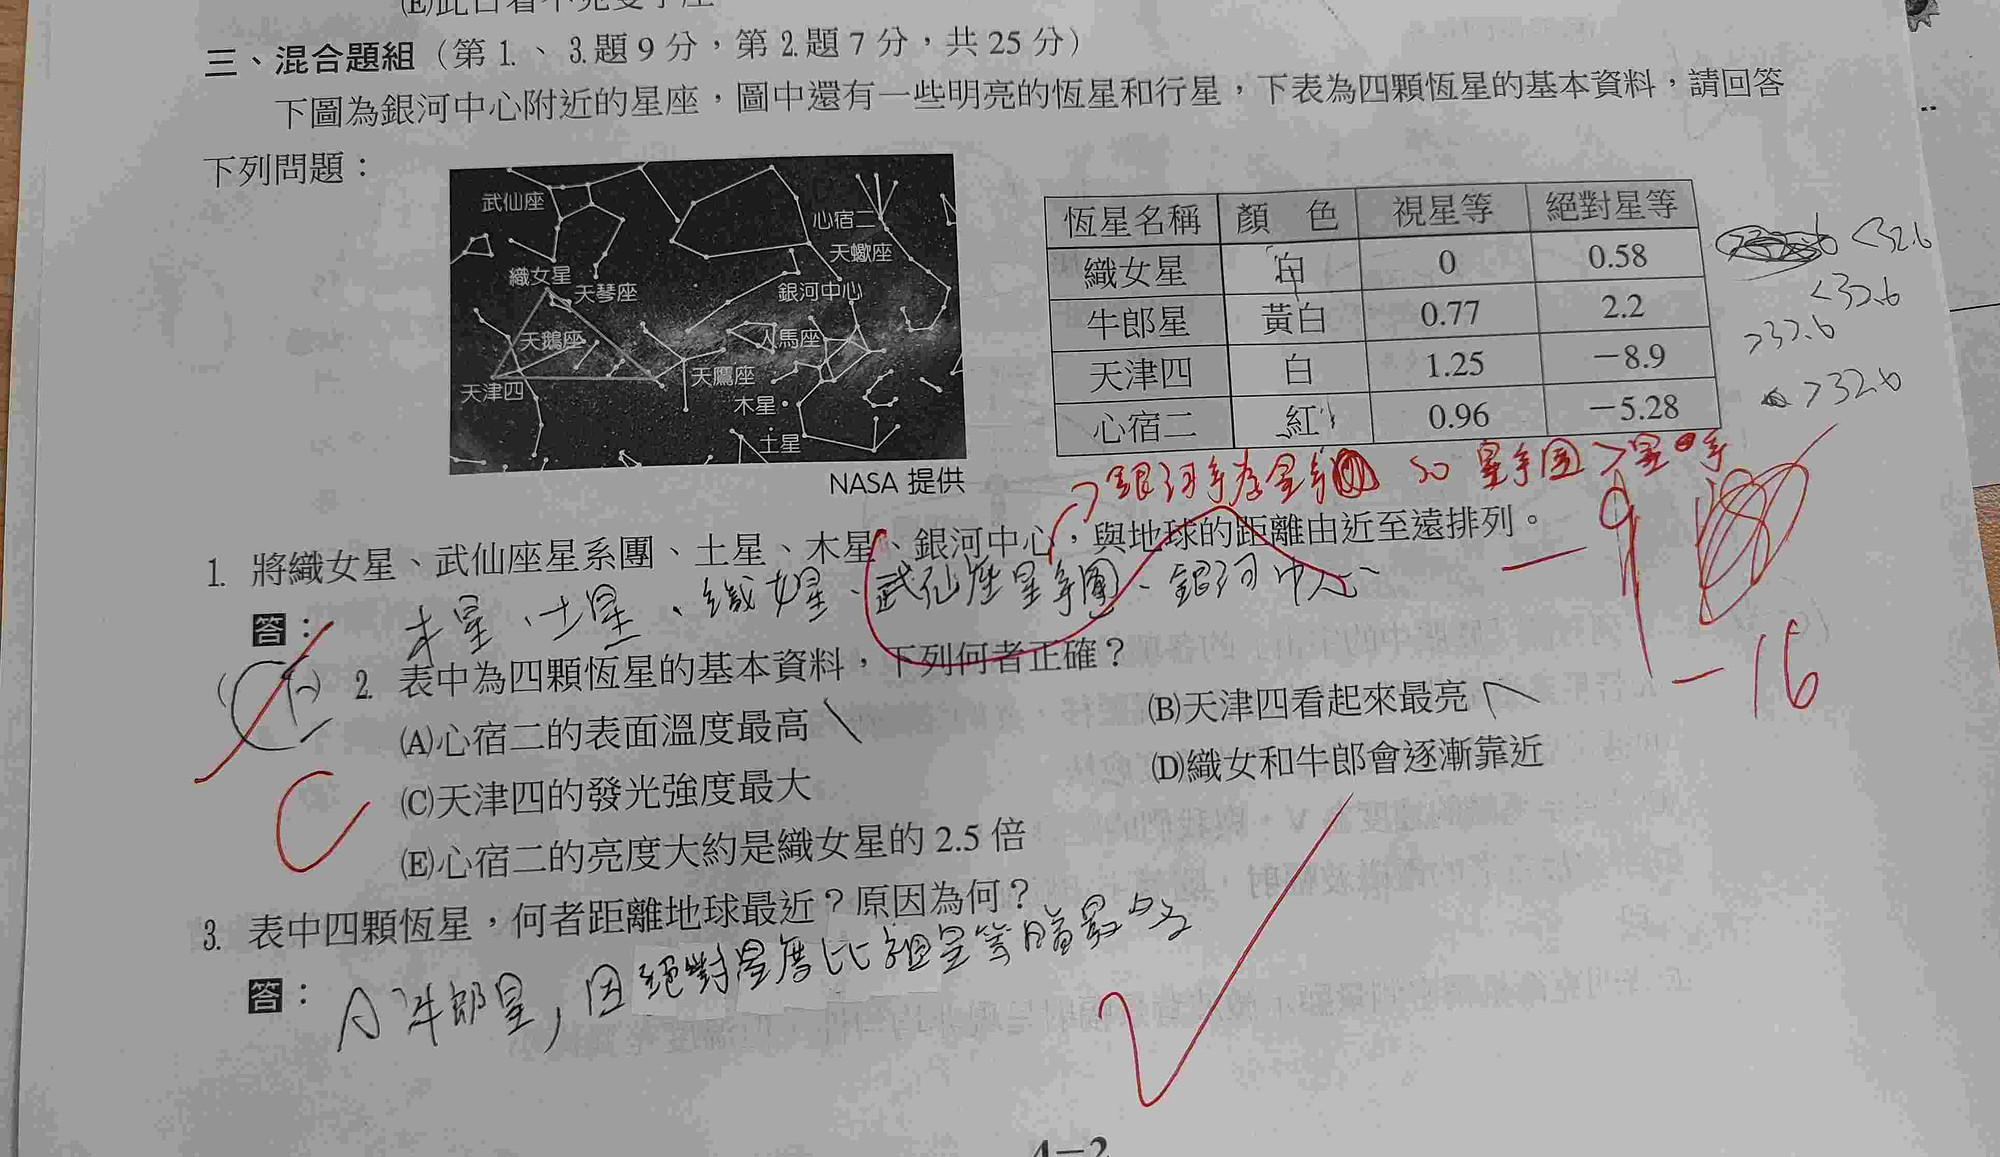 (E)此日看不見雙子座
三、混合題組（第 1.、3.題 9 分，第 2.題 7 分，共 25 分）
下圖為銀河中心附近的星座，圖中還有一些明亮的恆星和行星，下表為四顆恆星的基本資料，請回答
下列問題：
武仙座
心宿二
天蠍座
織女星
天琴座
銀河中心
天鵝座
人馬座
天津四
天鷹座
木星
土星
NASA 提供
恆星名稱 顏 色 視星等 絕對星等
織女星 白 0 0.58 <32.6
牛郎星 黃白 0.77 2.2 <32.6
天津四 白 1.25 −8.9 >32.6
心宿二 紅 0.96 −5.28 >32.6
→銀河系為星系 so 星系團>星系
1. 將織女星、武仙座星系團、土星、木星、銀河中心，與地球的距離由近至遠排列。
−9
答： 木星、土星、織女星、武仙座星系團、銀河中心
−16
( E ) 2. 表中為四顆恆星的基本資料，下列何者正確？
(A)心宿二的表面溫度最高 (B)天津四看起來最亮
C
(C)天津四的發光強度最大 (D)織女和牛郎會逐漸靠近
(E)心宿二的亮度大約是織女星的 2.5 倍
3. 表中四顆恆星，何者距離地球最近？原因為何？
答： 牛郎星，因絕對星等比視星等
4−2